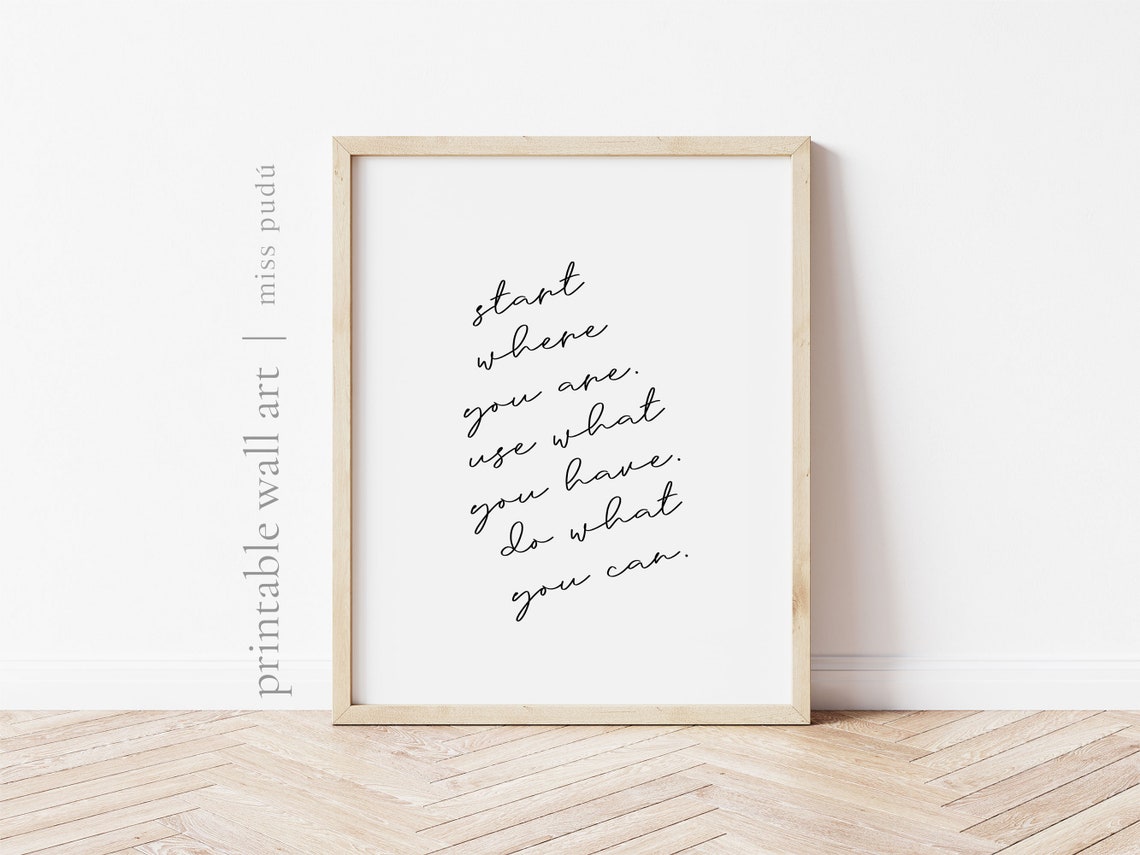 printable wall art | miss pudú
start
where
you are.
use what
you have.
do what
you can.